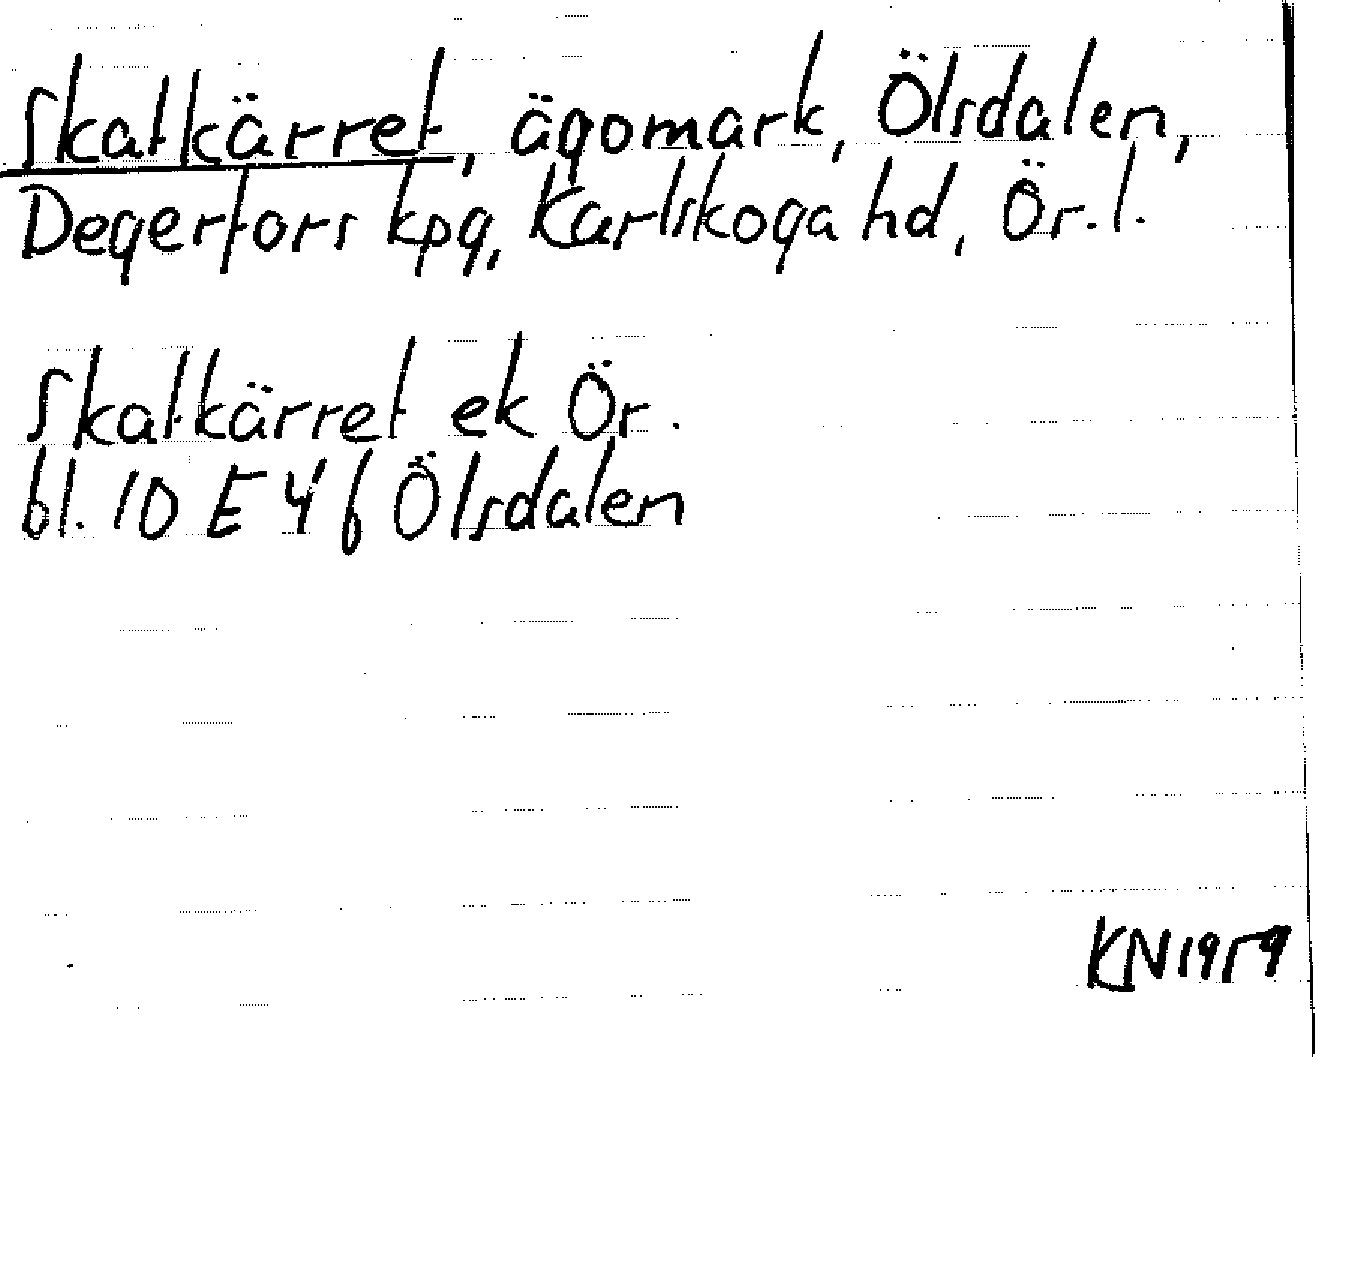 Skatkärret, ägomark, Ölsdalen,
Degerfors kpg, Karlskoga hd, Ör. l.
Skatkärret ek Ör.
bl. 10 E 4 f Ölsdalen
KN 1959